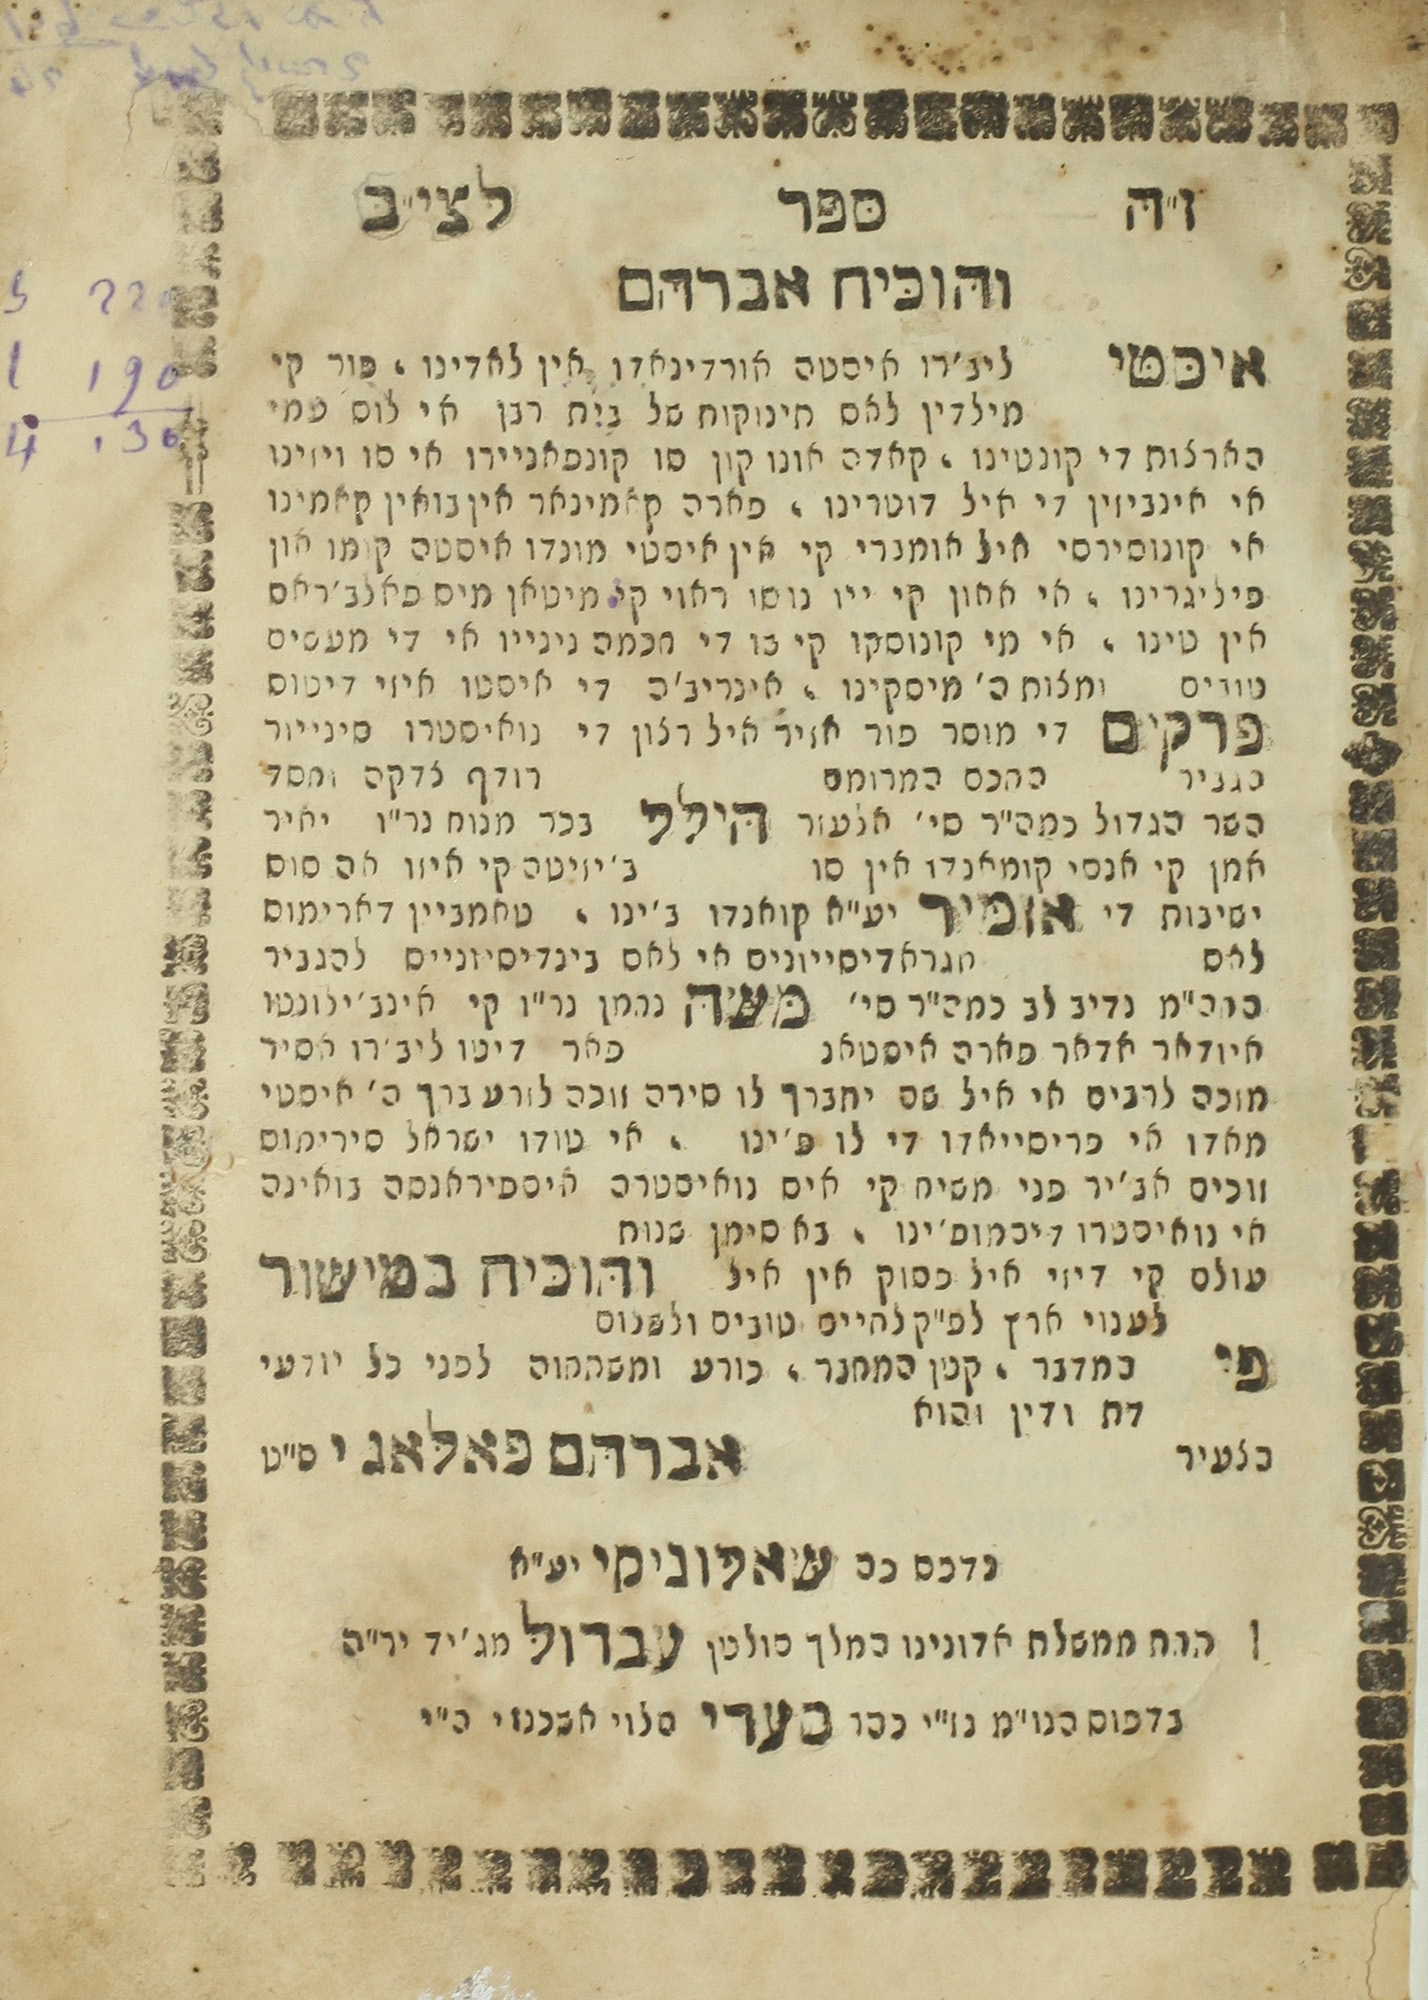 ז״ה ספר לצי״ב
והוכיח אברהם
איסטי ליב׳רו איסטה אורדינאדו אין לאדינו , פור קי
מילדין לאס תינוקות של בית רבן אי לוס עמי
הארצות די קונטינו , קאדה אונו קון סו קונפאניירו אי סו ויזינו
אי אינביזין די איל דוטרינו , פארה קאמינאר אין בואין קאמינו
אי קונוסירסי איל אומברי קי אין איסטי מונדו איסטה קומו און
פיליגרינו , אי אאון קי ייו נוסו ראוי קי מיטאן מיס פאלב׳ראס
אין טינו , אי מי קונוסקו קי בו די חכמה נינייו אי די מעשים
טובים ומצות ה׳ מיסקינו , אינריב׳ה די איסטו איזי דיטוס
פרקים די מוסר פור אזיר איל רצון די נואיסטרו סינייור
הגביר החכם המרומם רודף צדקה וחסד
השר הגדול כמה״ר סי׳ אלעזר הילל בכר מנוח נר״ו יאיר
אמן קי אנסי קומאנדו אין סו ב׳יזיטה קי איזו אה סוס
ישיבות די אומיר יע״א קואנדו ב׳ינו , טאמביין דארימוס
לאס אגראדיסייוניס אי לאס בינדיסייוניס להגביר
הרה״מ נדיב לב כמה״ר סי׳ משה נחמן נר״ו קי אינב׳ילונטו
איודאר אדאר פארה איסטאנ פאר דיטו ליב׳רו אסיר
מזכה לרבים אי איל שם יתברך לו סירה זוכה לזרע ברך ה׳ איסטי
מאדו אי פריסייאדו די לו פ׳ינו , אי טודו ישראל סירימוס
זוכים אב׳יר פני משיח קי איס נואיסטרה איספיראנסה בואינה
אי נואיסטרו דיסמופ׳ינו , בא סימן שנות
עולם קי דיזי איל פסוק אין איל והוכיח במישור
לענוי ארץ לפ״ק לחיים טובים ולשלום
פי המדבר , קטן המחבר , כורע ומשתחוה לפני כל יודעי
דת ודין והוא
הצעיר אברהם פאלאג י ס״ט
נדפס פה שאלוניקי יע״א
תחת ממשלת אדונינו המלך סולטן עבדול מג׳יד יר״ה
בדפוס הנו״מ נז״י כהר סעדי הלוי אשכנזי ה״י
220
190